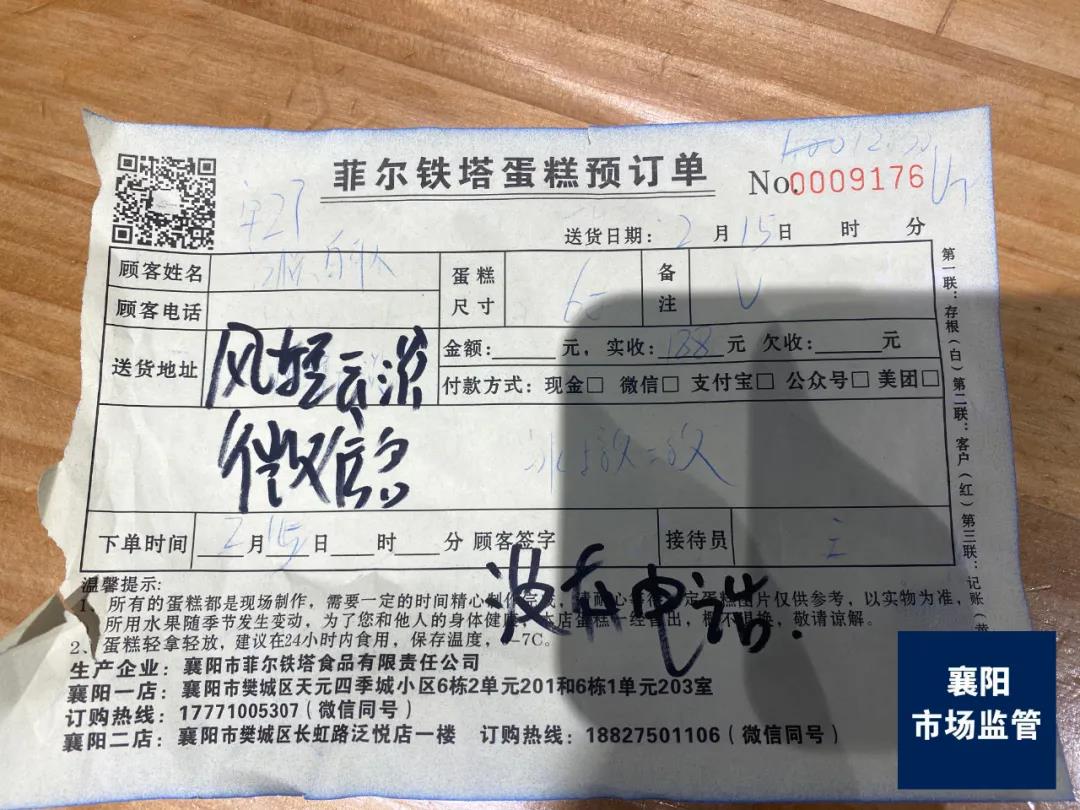 菲尔铁塔蛋糕预订单
No.0009176
送货日期：2月15日 时 分
顾客姓名
蛋糕尺寸
备注
顾客电话
送货地址 风轻云淡
金额：____元，实收：138元 欠收：____元
付款方式：现金□ 微信□ 支付宝□ 公众号□ 美团□
微信
下单时间 2月15日__时__分 顾客签字
接待员
没有电话.
温馨提示：
1、所有的蛋糕都是现场制作，需要一定的时间精心制作完成，请耐心等待，定蛋糕图片仅供参考，以实物为准，
所用水果随季节发生变动，为了您和他人的身体健康，本店蛋糕一经售出，概不退换，敬请谅解。
2、蛋糕轻拿轻放，建议在24小时内食用，保存温度，-7C。
生产企业：襄阳市菲尔铁塔食品有限责任公司
襄阳一店：襄阳市樊城区天元四季城小区6栋2单元201和6栋1单元203室
订购热线：17771005307（微信同号）
襄阳二店：襄阳市樊城区长虹路泛悦店一楼 订购热线：18827501106（微信同号）
第一联：存根（白）第二联：客户（红）第三联：记账（黄
襄阳
市场监管